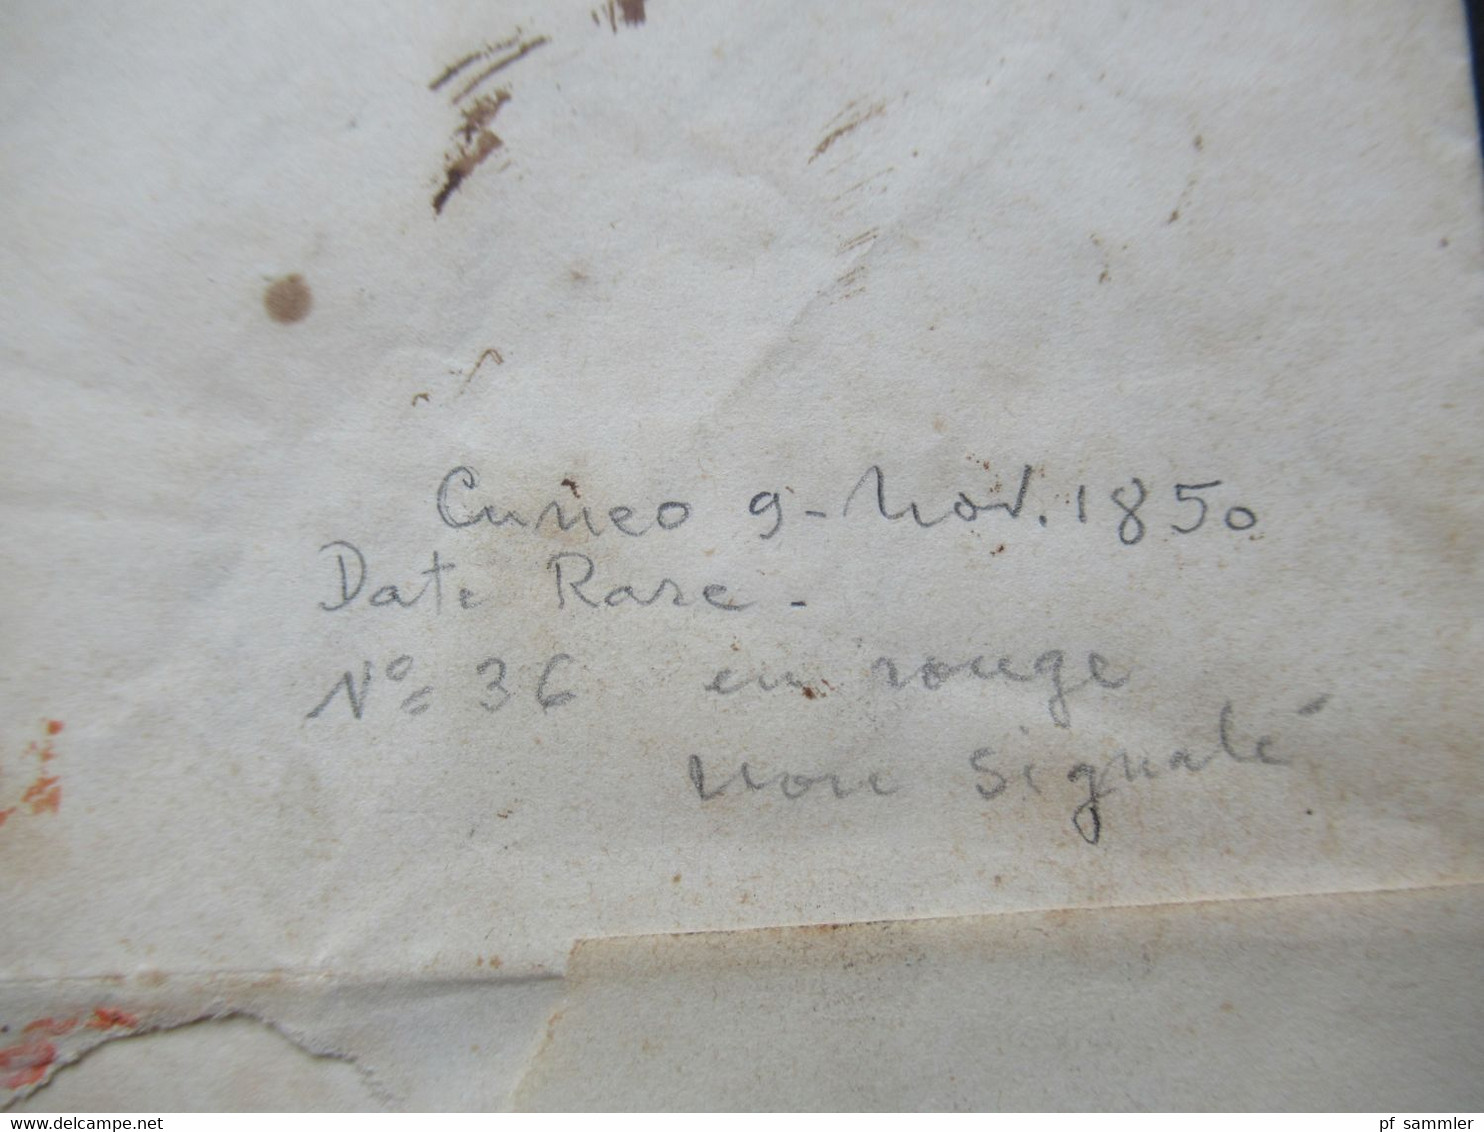 Cuneo 9 - Nov. 1850
Date Rare -
Nº= 36 en rouge
non signalé
delcampe.net
pf sammler